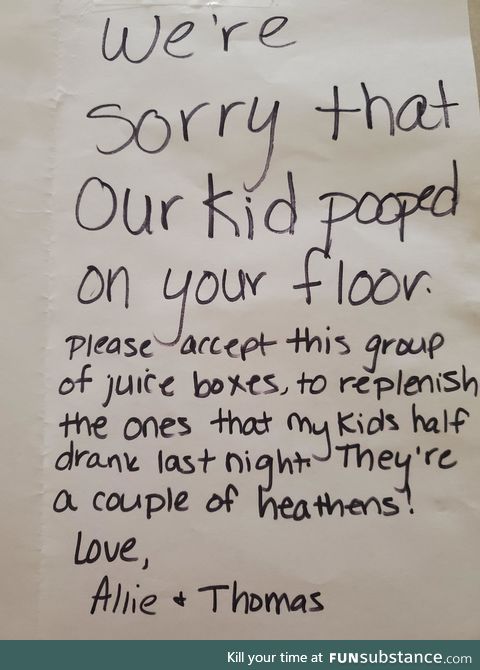 We're
sorry that
Our kid pooped
on your floor.
Please accept this group
of juice boxes, to replenish
the ones that my kids half
drank last night. They're
a couple of heathens!
Love,
Allie + Thomas
Kill your time at FUNsubstance.com